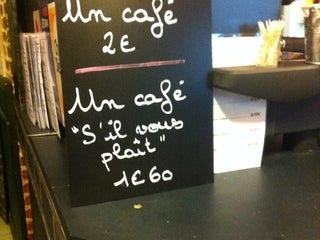 Un café
2€
Un café
"S'il vous
plaît"
1€60